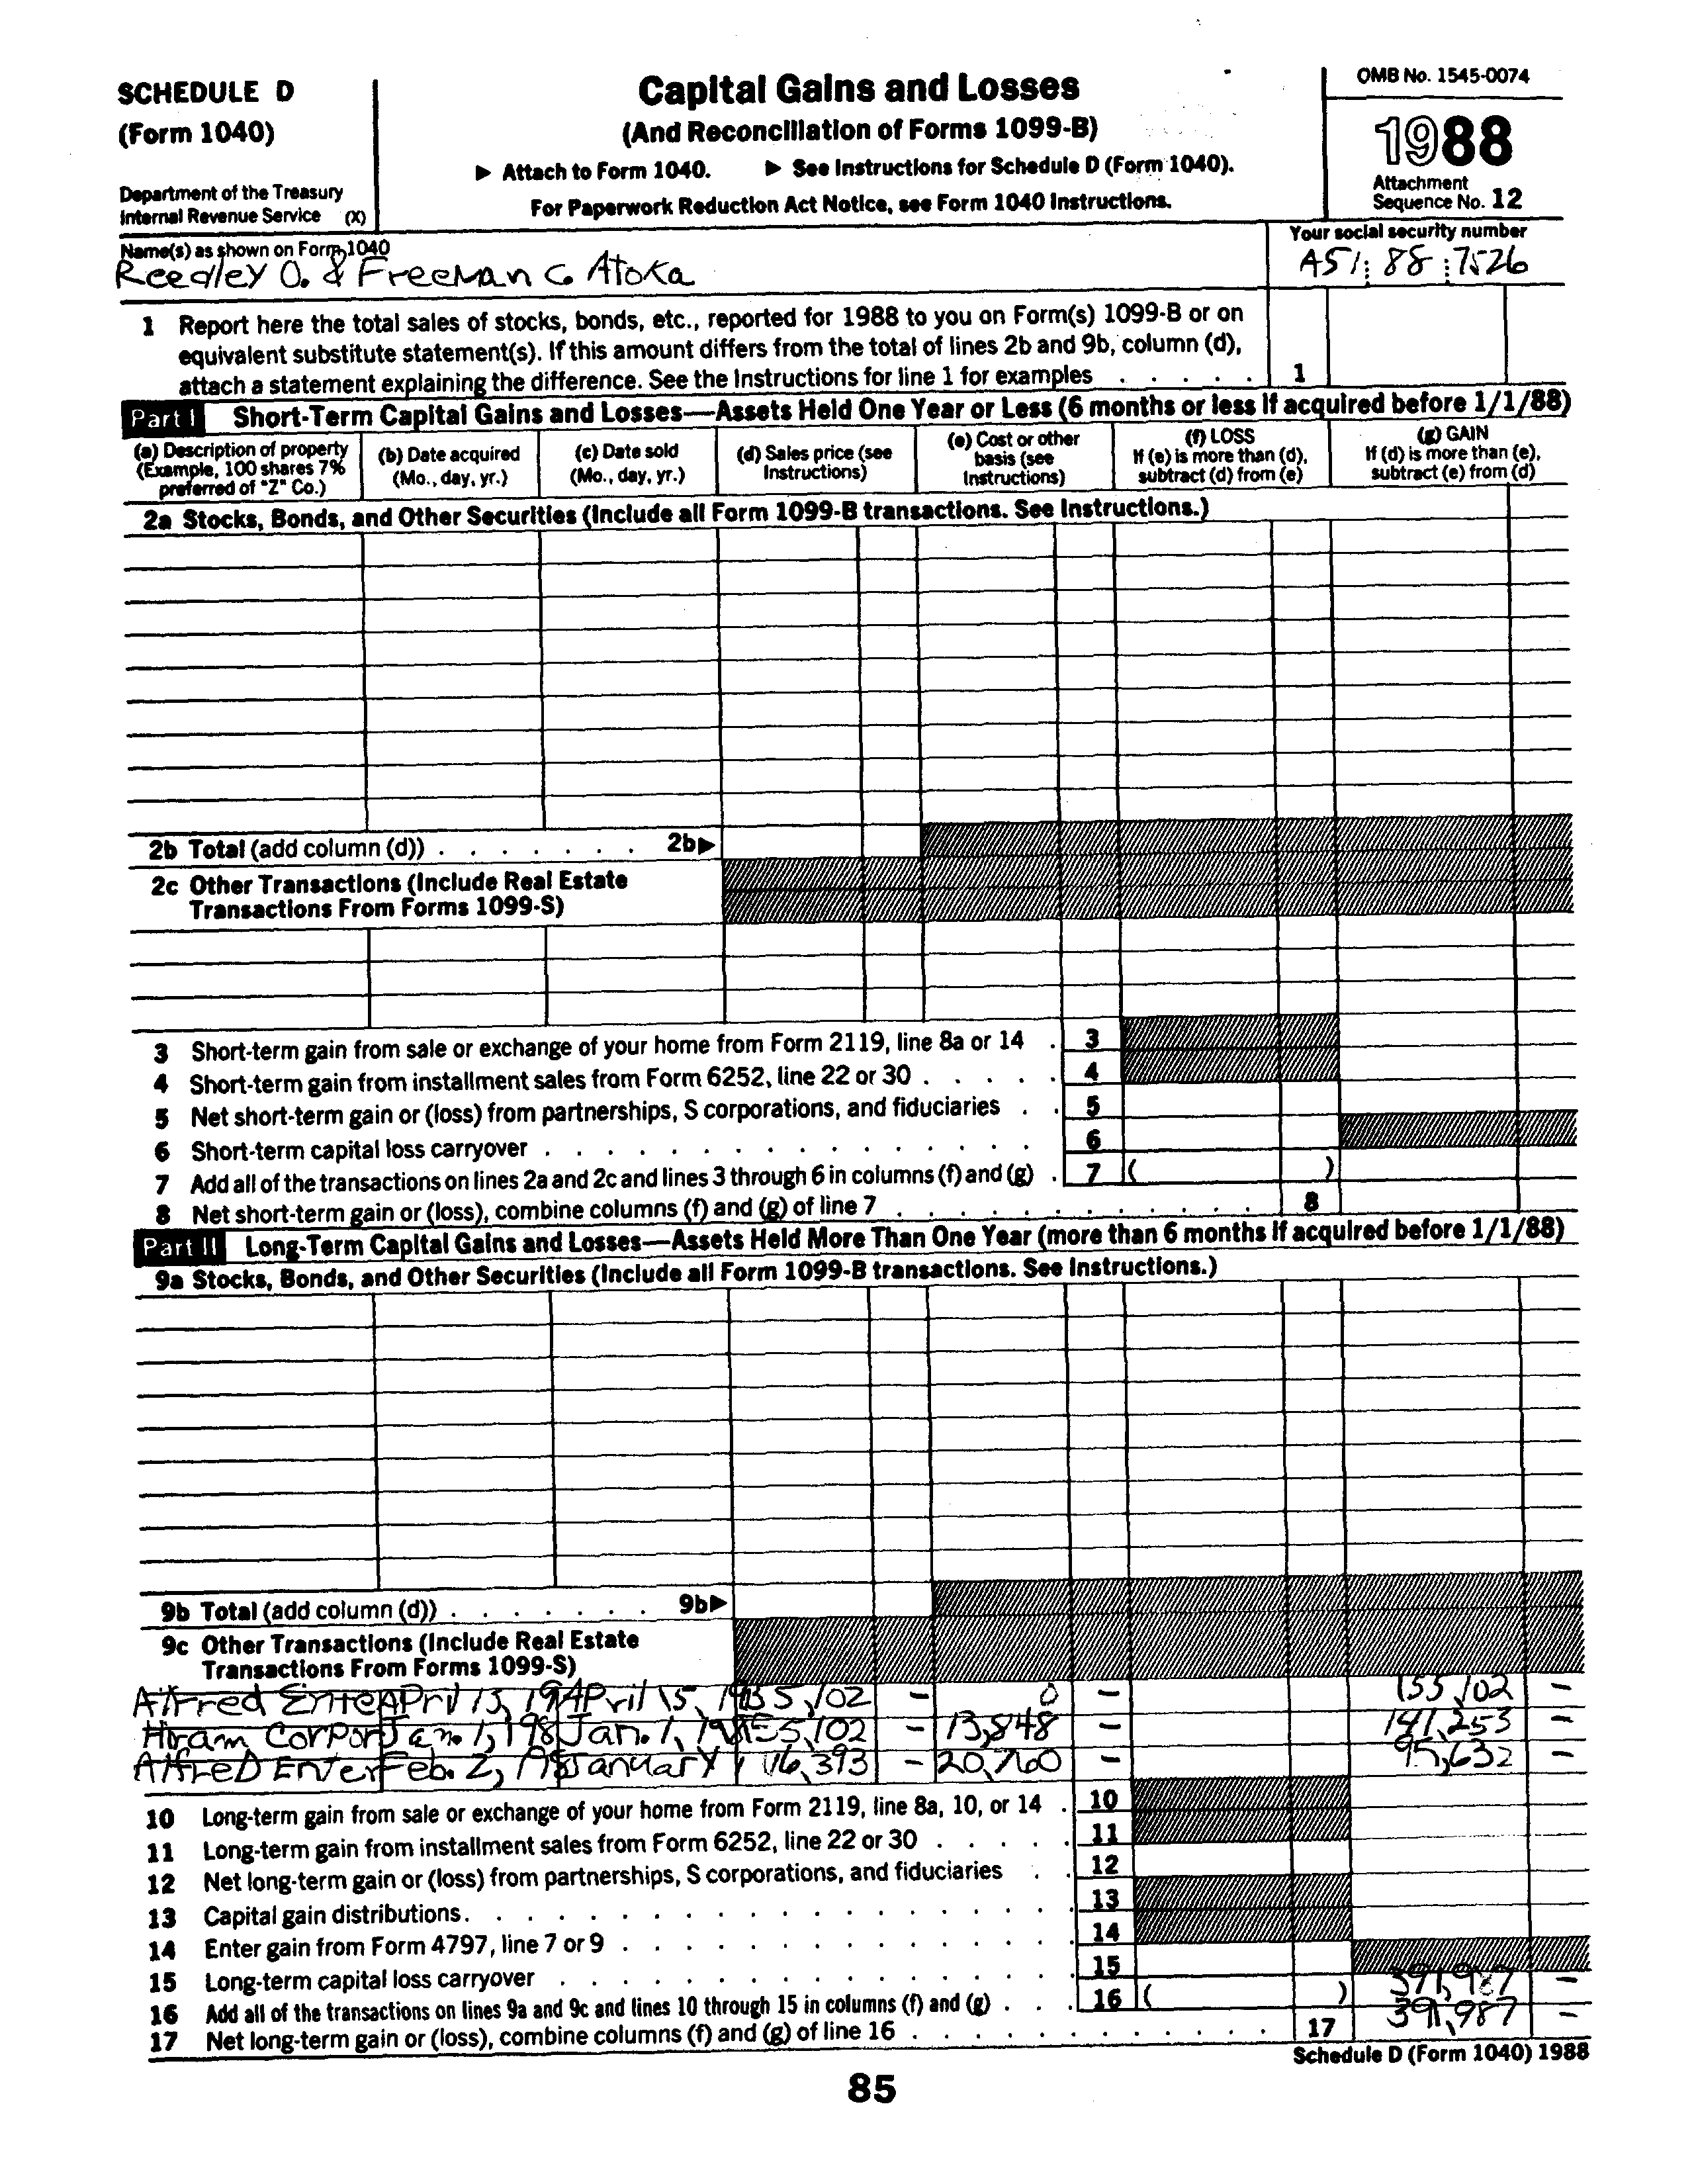 SCHEDULE D
(Form 1040)
Department of the Treasury
Internal Revenue Service (X)
Capital Gains and Losses
(And Reconciliation of Forms 1099-B)
▶ Attach to Form 1040. ▶ See Instructions for Schedule D (Form 1040).
For Paperwork Reduction Act Notice, see Form 1040 Instructions.
OMB No. 1545-0074
1988
Attachment
Sequence No. 12
Name(s) as shown on Form 1040
Reedley O. & Freeman C. Atoka
Your social security number
A51 88 7526
1 Report here the total sales of stocks, bonds, etc., reported for 1988 to you on Form(s) 1099-B or on
equivalent substitute statement(s). If this amount differs from the total of lines 2b and 9b, column (d),
attach a statement explaining the difference. See the Instructions for line 1 for examples . . . . . 1
Part I Short-Term Capital Gains and Losses—Assets Held One Year or Less (6 months or less if acquired before 1/1/88)
(a) Description of property
(Example, 100 shares 7%
preferred of "Z" Co.)
(b) Date acquired
(Mo., day, yr.)
(c) Date sold
(Mo., day, yr.)
(d) Sales price (see
Instructions)
(e) Cost or other
basis (see
Instructions)
(f) LOSS
If (e) is more than (d),
subtract (d) from (e)
(g) GAIN
If (d) is more than (e),
subtract (e) from (d)
2a Stocks, Bonds, and Other Securities (Include all Form 1099-B transactions. See Instructions.)
2b Total (add column (d)) . . . . . . . 2b▶
2c Other Transactions (Include Real Estate
Transactions From Forms 1099-S)
3 Short-term gain from sale or exchange of your home from Form 2119, line 8a or 14 . 3
4 Short-term gain from installment sales from Form 6252, line 22 or 30 . . . . . 4
5 Net short-term gain or (loss) from partnerships, S corporations, and fiduciaries . . 5
6 Short-term capital loss carryover . . . . . . . . . . . . . . . . 6
7 Add all of the transactions on lines 2a and 2c and lines 3 through 6 in columns (f) and (g) . 7 ( )
8 Net short-term gain or (loss), combine columns (f) and (g) of line 7 . . . . . . . . . . . . 8
Part II Long-Term Capital Gains and Losses—Assets Held More Than One Year (more than 6 months if acquired before 1/1/88)
9a Stocks, Bonds, and Other Securities (Include all Form 1099-B transactions. See Instructions.)
9b Total (add column (d)) . . . . . . . 9b▶
9c Other Transactions (Include Real Estate
Transactions From Forms 1099-S)
Alfred Ente April 15, 19 April 15, 19 155,102 - 0 - 155,102 -
Hiram Corpor Jan. 1, 198 Jan. 1, 19 155,102 - 13,848 - 141,253 -
Alfred Enter Feb. 2, 19 January 116,393 - 20,760 - 95,632 -
10 Long-term gain from sale or exchange of your home from Form 2119, line 8a, 10, or 14 . 10
11 Long-term gain from installment sales from Form 6252, line 22 or 30 . . . . . 11
12 Net long-term gain or (loss) from partnerships, S corporations, and fiduciaries . . 12
13 Capital gain distributions . . . . . . . . . . . . . . . . . . 13
14 Enter gain from Form 4797, line 7 or 9 . . . . . . . . . . . . . . 14
15 Long-term capital loss carryover . . . . . . . . . . . . . . . . 15
16 Add all of the transactions on lines 9a and 9c and lines 10 through 15 in columns (f) and (g) . . . 16 ( ) 391,987 -
17 Net long-term gain or (loss), combine columns (f) and (g) of line 16 . . . . . . . . . . . . 17 391,987 -
Schedule D (Form 1040) 1988
85